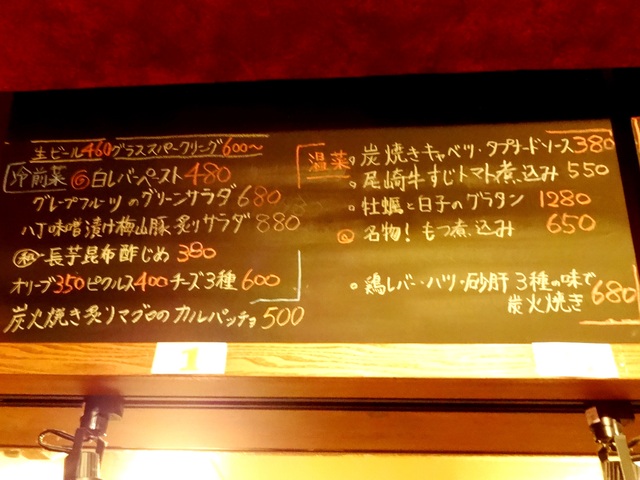 生ビール460グラススパークリング600〜
冷前菜 白レバーペースト480
グレープフルーツのグリーンサラダ680
八丁味噌漬け梅山豚炙りサラダ880
長芋昆布酢じめ 380
オリーブ350ピクルス400チーズ3種600
炭火焼き炙りマグロのカルパッチョ500
温菜 炭焼きキャベツ・タプナードソース380
尾崎牛すじトマト煮込み550
牡蠣と白子のグラタン 1280
名物!もつ煮込み 650
鶏レバー・ハツ・砂肝 3種の味で
炭火焼き 680
1